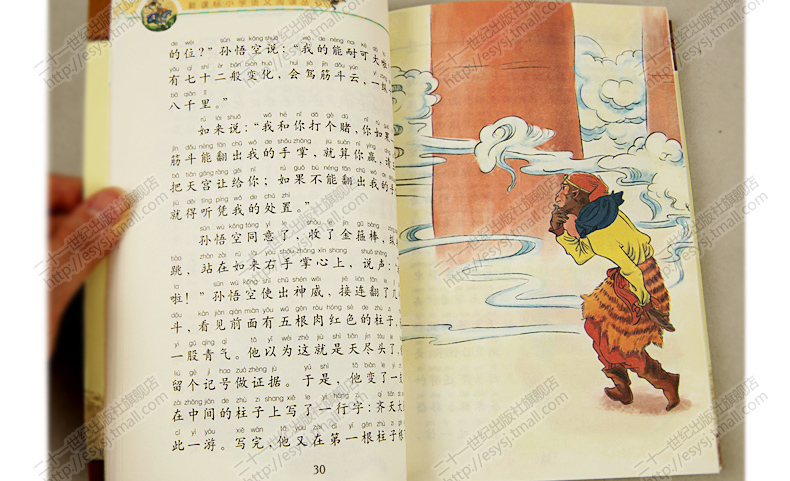 新课标小学语文阅读丛书
de wèi sūn wù kōng shuō wǒ de néng nai kě dà
的位?”孙悟空说:“我的能耐可大啦
yǒu qī shí èr bān biàn huà huì jià jīn dǒu yún yí zòng
有七十二般变化,会驾筋斗云,一纵
bā qiān lǐ
八千里。”
rú lái shuō wǒ hé nǐ dǎ gè dǔ nǐ rú guǒ
如来说:“我和你打个赌,你如果
jīn dǒu néng fān chū wǒ de shǒu zhǎng jiù suàn nǐ yíng qǐng
筋斗能翻出我的手掌,就算你赢,请
bǎ tiān gōng ràng gěi nǐ rú guǒ bù néng fān chū wǒ de
把天宫让给你;如果不能翻出我的手
jiù děi tīng píng wǒ de chǔ zhì
就得听凭我的处置。”
sūn wù kōng tóng yì le shōu le jīn gū bàng zòng
孙悟空同意了,收了金箍棒,纵
tiào zhàn zài rú lái yòu shǒu zhǎng xīn shang shuō shēng
跳,站在如来右手掌心上,说声:“
la sūn wù kōng shǐ chū shén wēi jiē lián fān le jǐ
啦!”孙悟空使出神威,接连翻了几
dǒu kàn jiàn qián mian yǒu wǔ gēn ròu hóng sè de zhù zi
斗,看见前面有五根肉红色的柱子,
yì gǔ qīng qì tā yǐ wéi zhè jiù shì tiān jìn tóu le
一股青气。他以为这就是天尽头了,
liú gè jì hao zuò zhèng jù yú shì tā biàn le yì
留个记号做证据。于是,他变了一
zài zhōng jiān de zhù zi shang xiě le yì háng zì qí tiān dà
在中间的柱子上写了一行字:齐天大
cǐ yì yóu xiě wán tā yòu zài dì yī gēn zhù zi gēn
此一游。写完,他又在第一根柱子根
30
二十一世纪出版社旗舰店
http://esysj.tmall.com